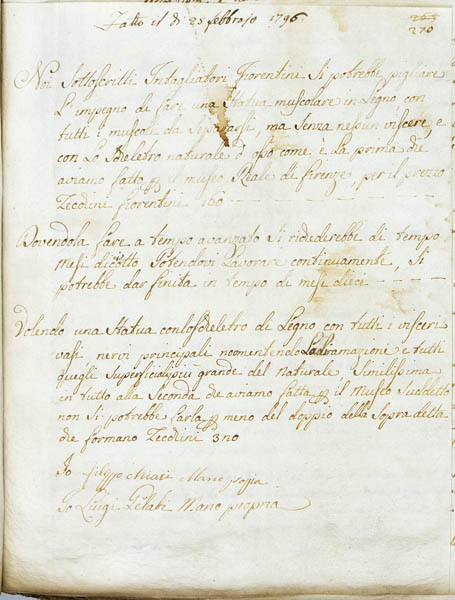 Fatto il dì 25 febbrajo 1796
270
Noi Sottoscritti Intagliatori Fiorentini Si potrebbe pigliare
L'impegno di fare una Statua muscolare in Legno con
tutti i muscoli da Separarsi, ma Senza nessun viscere, e
con Lo Scheletro naturale d'osso come è la prima che
aviamo fatto il museo Reale di firenze, per il prezzo
Zecchini fiorentini 160
Dovendola fare a tempo avanzato Si richiederebbe di tempo
Mesi diciotto Potendovi Lavorare continuamente, Si
potrebbe dar finita in tempo di mesi dieci
Volendo una Statua con lo Scheletro di Legno con tutti i visceri
vasi nervi principali e tutti
quegli Superficiali più grande del Naturale Similissima
in tutto alla Seconda che aviamo fatta il Museo Suddetto
non Si potrebbe farla meno del doppio della Sopra detta
che formano Zecchini 320
Io filippo Chiari Mano propria
Io Luigi Gelati Mano propria